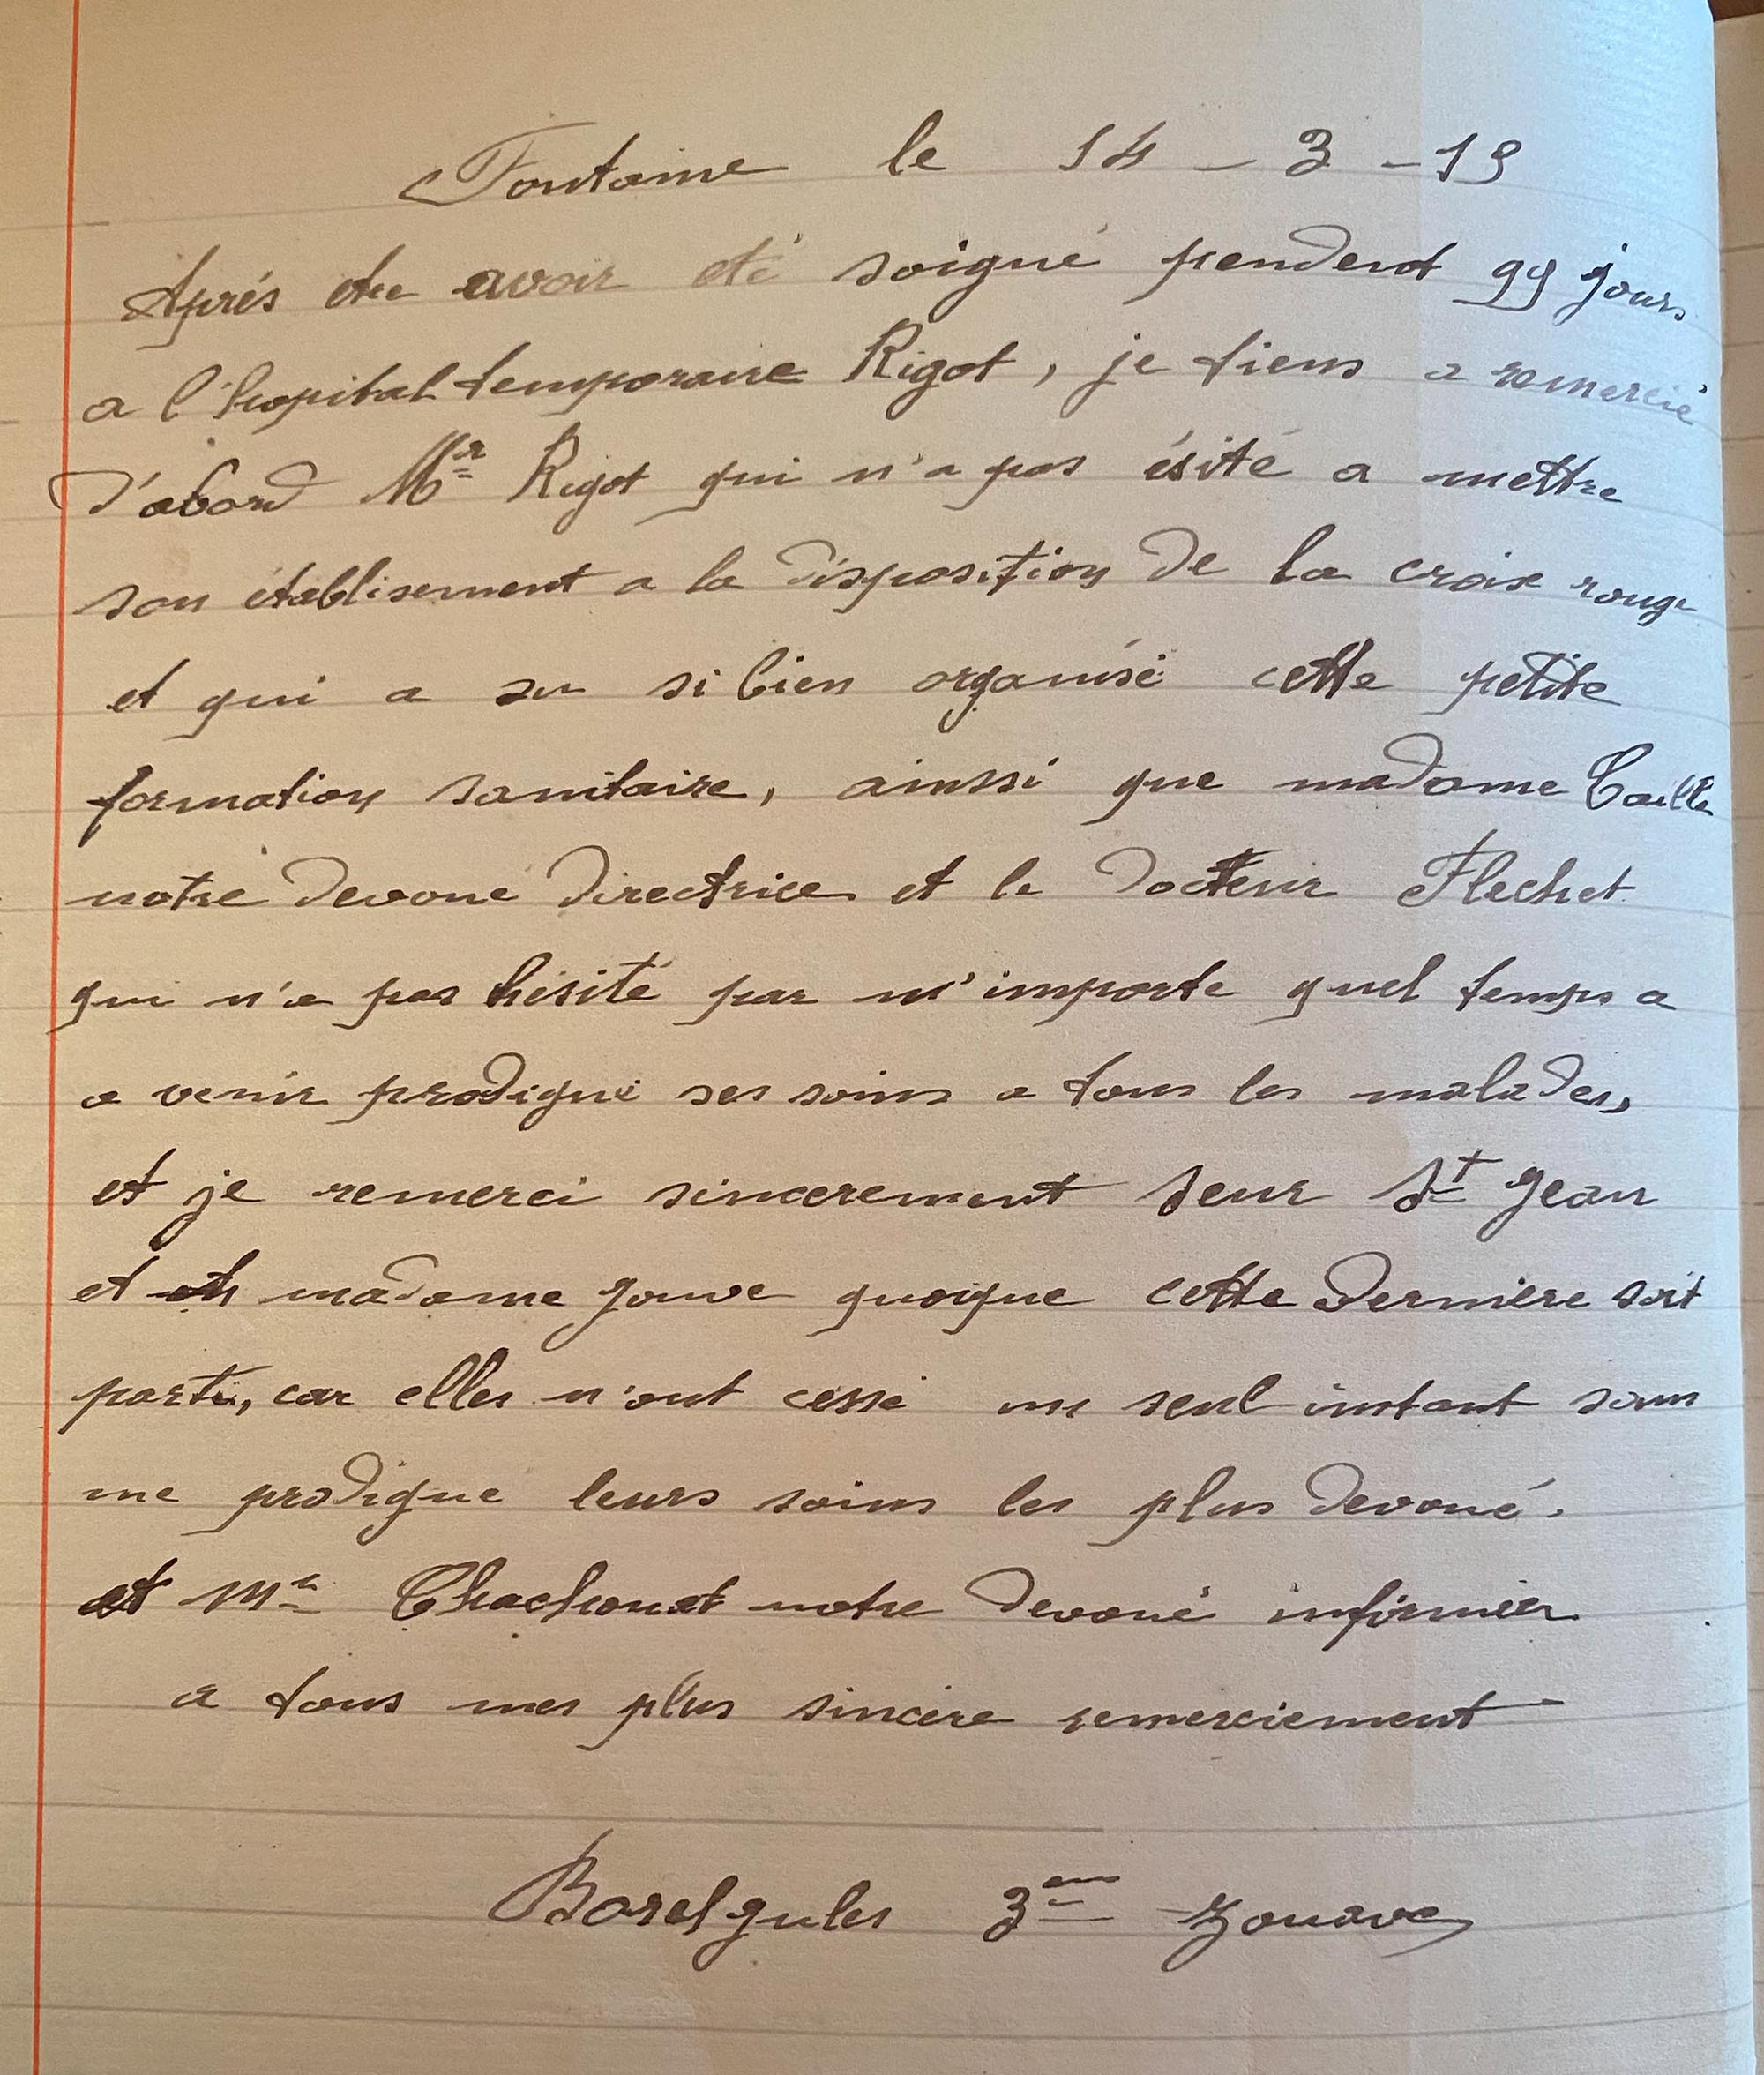 Fontaine le 14 - 3 - 19
Aprés etre avoir eté soigné pendent 99 jours
a l'hopital temporaire Rigot, je tiens a remercié
d'abord Mr Rigot qui n'a pas ésité a mettre
son établisement a la disposition de la croix rouge
et qui a su si bien organisé cette petite
formation sanitaire, ainssi que madame Caille
notre devoué directrice et le docteur Flechet
qui n'a pas hésité par n'importe quel temps a
a venir prodigué ses soins a tous les malades,
et je remerci sincerement seur St Jean
et madame Jouve quoique cette dernière soit
parti, car elles n'ont cessé un seul instant sans
me prodigué leurs soins les plus devoué.
et Mr Chachouat notre devoué infirmier
a tous mes plus sincère remerciement
Borel Jules 3eme Zouave